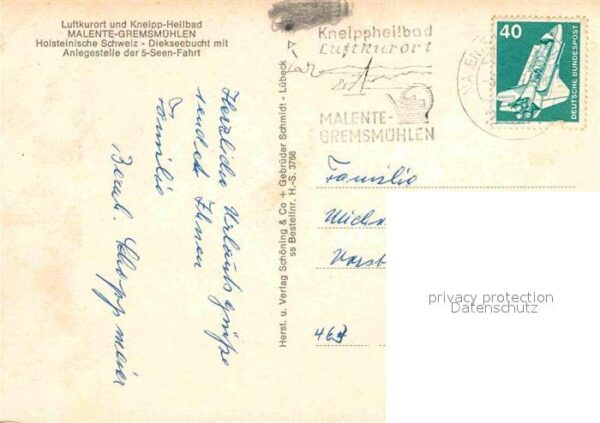 Luftkurort und Kneipp-Heilbad
MALENTE-GREMSMÜHLEN
Holsteinische Schweiz - Diekseebucht mit
Anlegestelle der 5-Seen-Fahrt
Herzliche Urlaubsgrüße
sendet Ihnen
Familie
Herst. u. Verlag Schöning & Co + Gebrüder Schmidt - Lübeck
ss Bestellnr. H.-S. 3766
Kneippheilbad
Luftkurort
MALENTE-
GREMSMÜHLEN
40
DEUTSCHE BUNDESPOST
Familie
privacy protection
Datenschutz